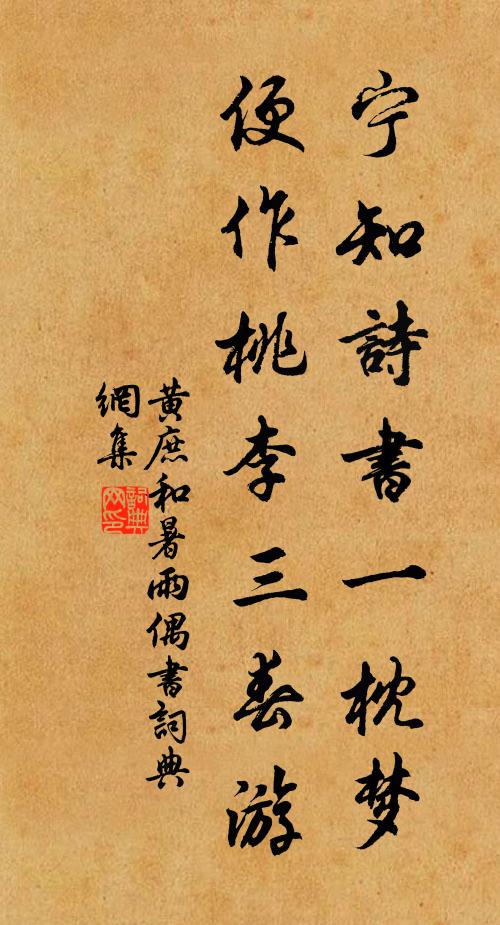 宁知詩書一枕梦
便作桃李三春游
黃庶和暑雨偶書詞典
網集
詞典網印